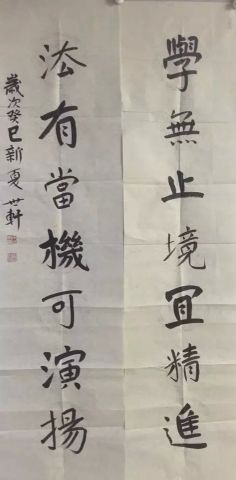 學無止境宜精進
法有當機可演揚
歲次癸巳新夏世軒